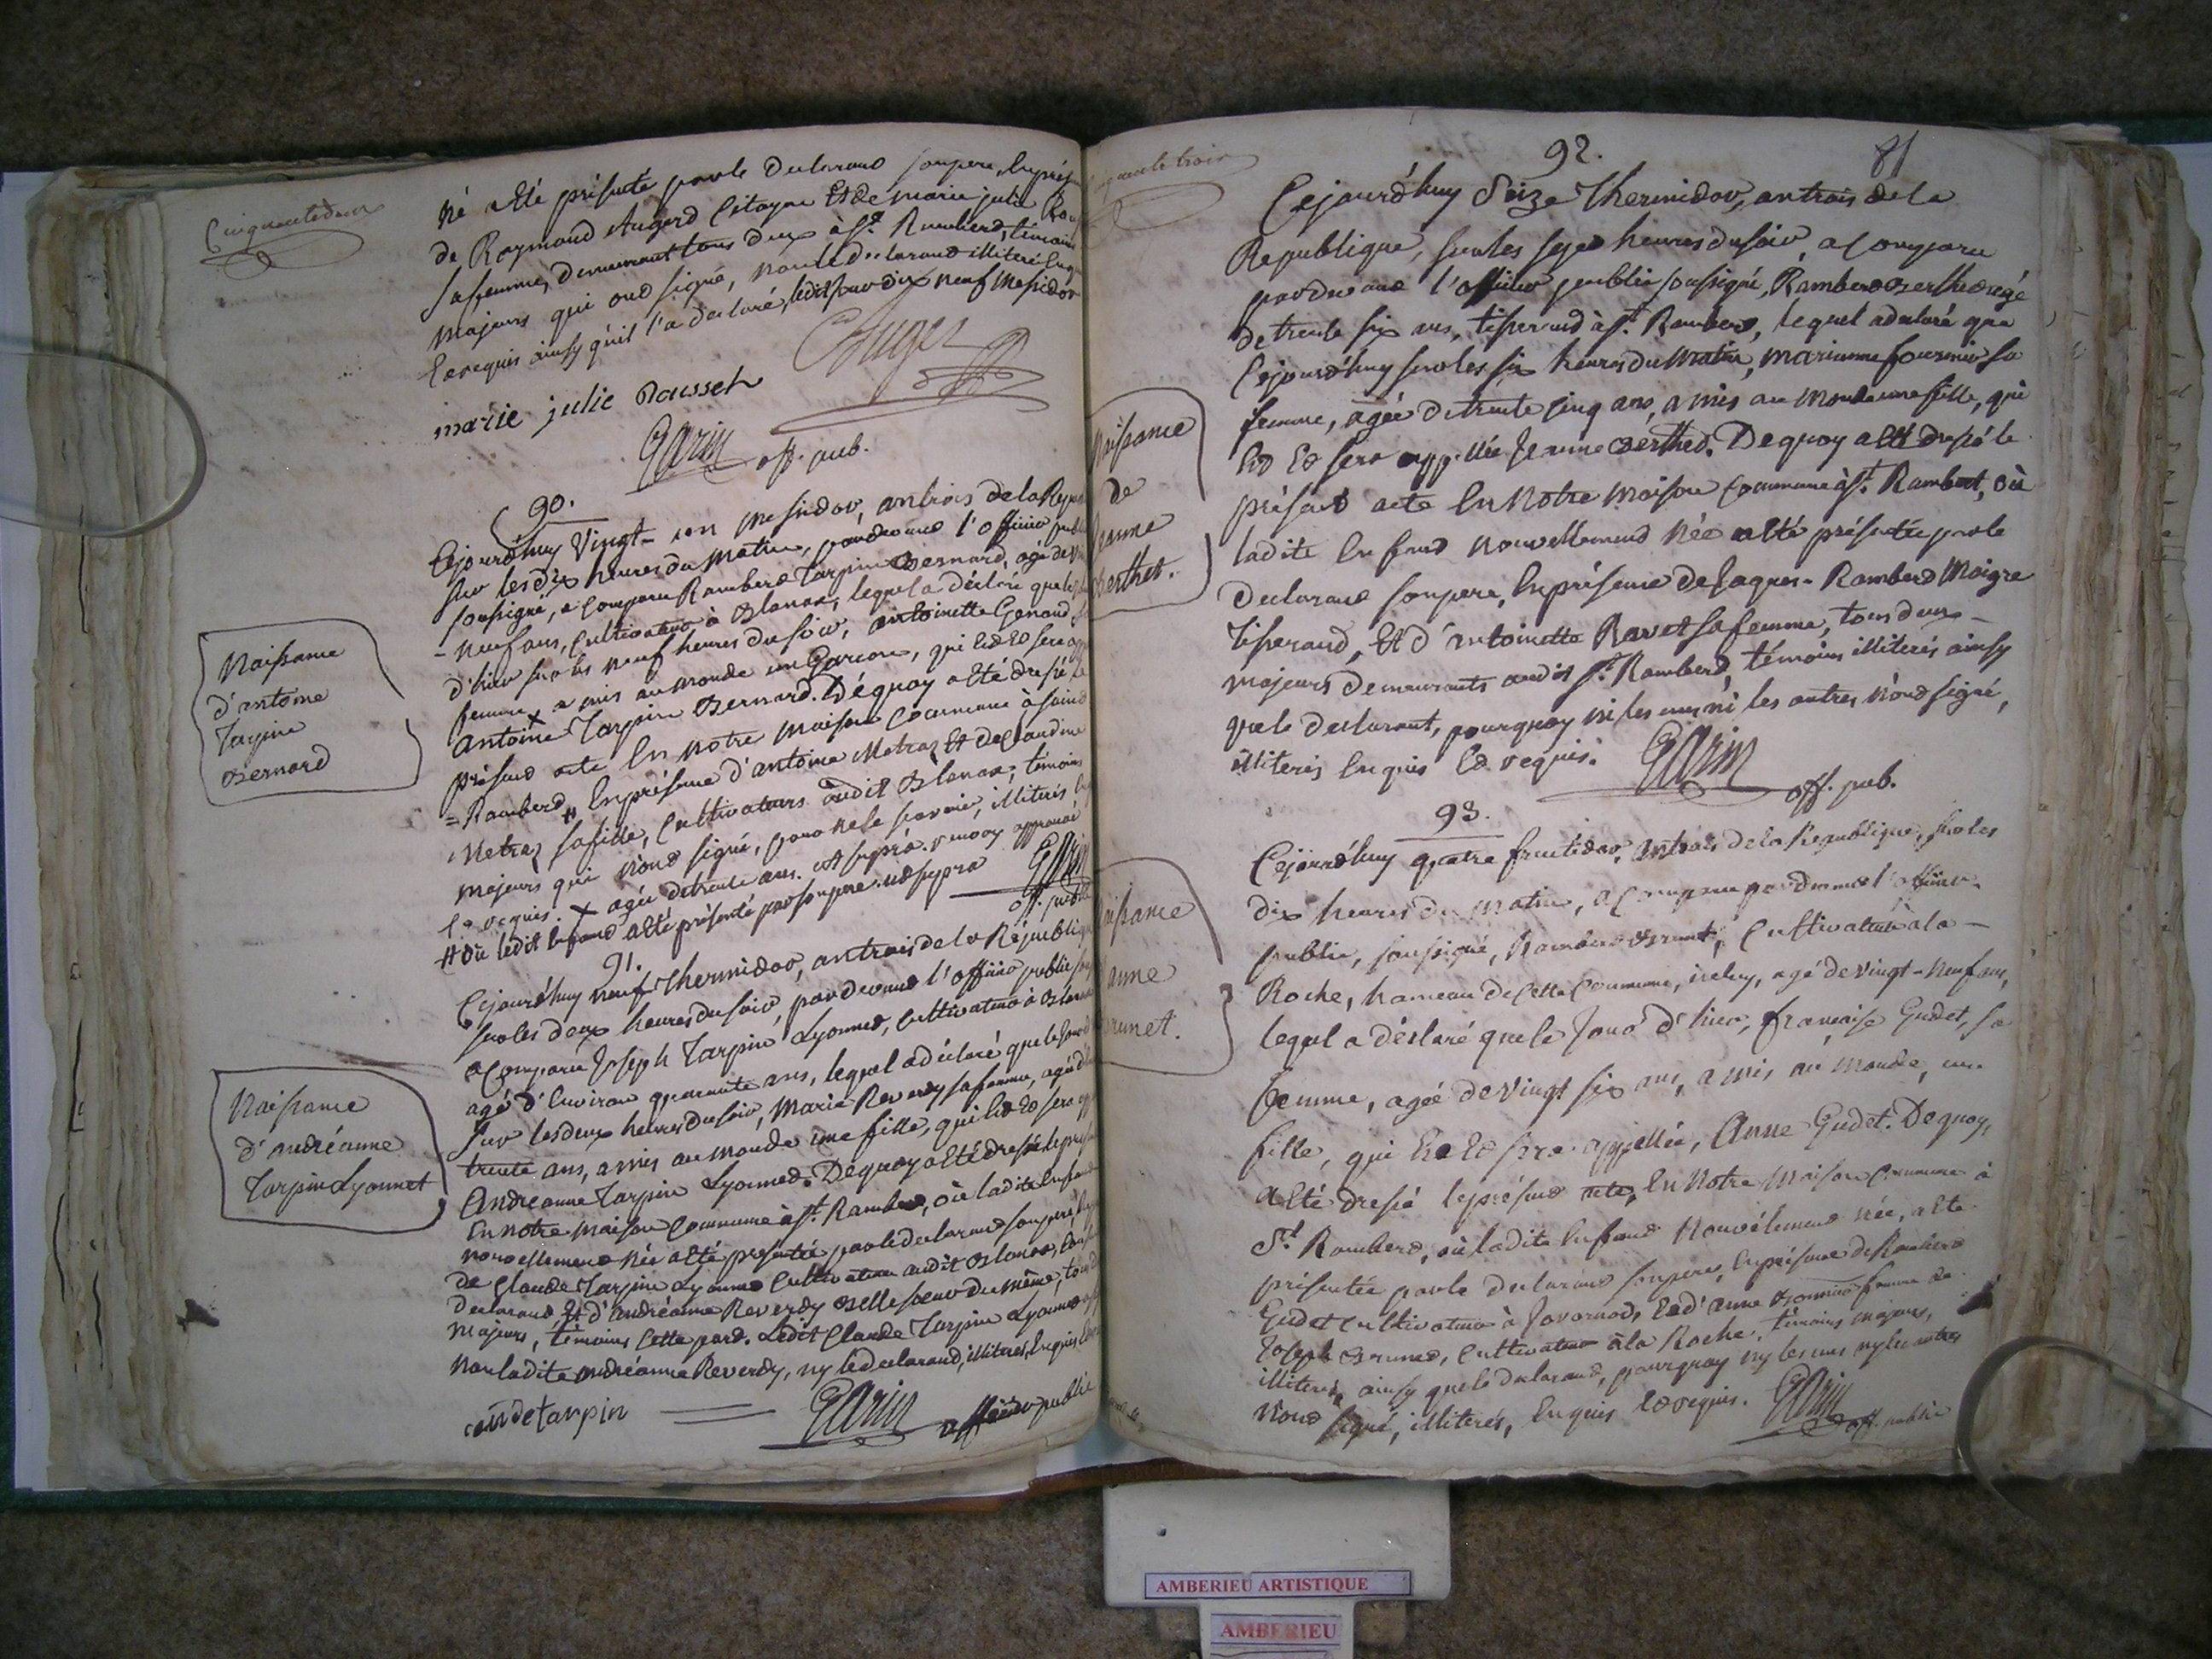 Cinquantedeux
né a Eté présenté par le declarant son pere, En prés
de Raymond Augerd Citoyen Et de marie julie Rou
sa femme, demeurant tous deux à St. Rambert, témoins
majeurs qui ont signé, non le declarant illiteré Enq
Et requis ainsy qu'il l'a declaré, ledit jour dix neuf Messidor
Auger
marie julie Rousset
Garin off. pub.
90.
Cejourd'huy vingt-un messidor, an trois de la Repu
sur les dix heures du matin, pardevant l'officier publ
soussigné, a comparu Rambert Tarpin Bernard, agé de vi
-neuf ans, cultivateur à Blanas, lequel a déclaré que le
d'hier sur les neuf heures du soir, antoinette Genod, sa
femme x a mis au monde un Garcon, qui Est Et sera app
Antoine Tarpin Bernard. Déquoy a Eté dressé le
présent acte En notre maison commune à saint
=Rambert # En présence d'antoine Metraz Et de Claudine
Metraz sa fille, cultivateurs audit Blanas, témoins
majeurs qui n'ont signé, pour ne le savoir, illiterés En
Et requis. x agée de trente ans. ut supra. renvoy approuvé
# où ledit Enfant a Eté présenté par son pere. ut supra Garin
off. public
Naissance
d'antoine
Tarpin
Bernard
91.
Cejourd'huy neuf Thermidor, an trois de la République
sur les deux heures du soir, pardevant l'officier public sou
a comparu Joseph Tarpin Lyonnet, cultivateur à Blanas
agé d'Environ quarante ans, lequel a déclaré que le jour d
sur les deux heures du soir, Marie Reverdy sa femme, agée d
trente ans, a mis au monde une fille, qui Est Et sera app
Andréanne Tarpin Lyonnet. Dequoy a Eté dressé le prés
En notre maison commune à St. Rambert, où ladite Enfant
nouvellement née a Eté présentée par le declarant son pere, En
de Claude Tarpin Lyonnet cultivateur audit Blanas, cousin
declarant, Et d'andréanne Reverdy Belle soeur du même, tous d
majeurs, témoins Cette part. Ledit Claude Tarpin Lyonnet a
non ladite andréanne Reverdy, ny le declarant, illiteres, Enquis Et re
Naissance
d'andréanne
Tarpin Lyonnet
claude tarpin Garin officier public
Cinquante trois
92.
81
Cejourd'huy Seize Thermidor, an trois de la
Republique, sur les sept heures du soir, a comparu
pardevant l'officier public soussigné, Rambert Berthet agé
de trente six ans, tisserand à St. Rambert, lequel a declaré que
Cejourd'huy sur les six heures du matin, marianne fournier sa
femme, agée de trente cinq ans, a mis au monde une fille, qui
Est Et sera appellée Jeanne Berthet. Dequoy a Eté dressé le
présent acte En notre maison commune à St. Rambert, où
ladite Enfant nouvellement née a Eté présentée par le
declarant son pere, En présence de Jaques-Rambert Maigre
tisserand, Et d'antoinette Ravet sa femme, tous deux
majeurs demeurants audit St. Rambert, témoins illiterés ainsy
que le declarant, pourquoy ni les uns ni les autres n'ont signé,
illiterés Enquis Et requis. Garin
off. pub.
Naissance
de
Jeanne
Berthet.
93.
Cejourd'huy quatre fructidor, an trois de la Republique, sur les
dix heures du matin, a comparu pardevant l'officier
public, soussigné, Rambert Brunet, cultivateur à la
Roche, hameau de cette commune, iceluy, agé de vingt-neuf ans,
lequel a déclaré que le jour d'hier, françoise Gudet, sa
femme, agée de vingt six ans, a mis au monde, une
fille, qui Est Et sera appellée, Anne Gudet. Dequoy,
a Eté dressé le présent acte, En notre maison commune à
St. Rambert, où ladite Enfant nouvélement née, a Eté
présentée par le declarant son pere, En présence de Rambert
Gudet cultivateur à Javornod, Et d'anne Bonnier femme de
Joseph Brunet, cultivateur à la Roche, témoins majeurs,
illiterés, ainsy que le declarant, pourquoy ny les uns ny les autres
n'ont signé, illiterés, Enquis Et requis. Garin
off. public
aissance
anne
runet.
AMBERIEU ARTISTIQUE
AMBERIEU